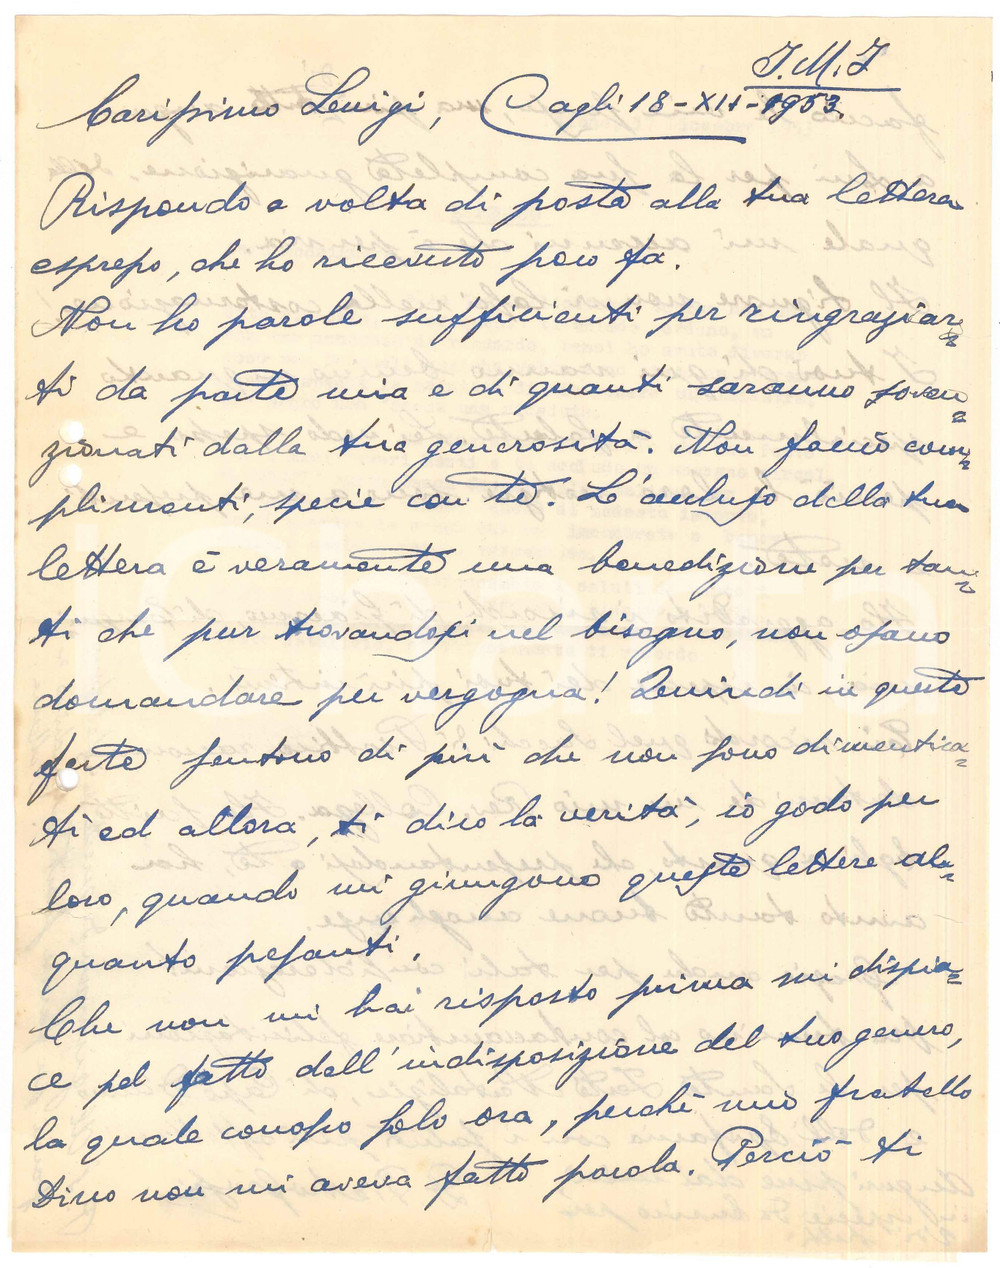 J.M.J
Carissimo Luigi, Cagli 18-XII-1953.
Rispondo a volta di posta alla tua lettera
espresso, che ho ricevuto poco fa.
Non ho parole sufficienti per ringraziar=
ti da parte mia e di quanti saranno sovven=
zionati dalla tua generosità. Non faccio com=
plimenti, specie con te. L'anlujo della tua
lettera è veramente una benedizione per tan=
ti che pur trovandosi nel bisogno, non osano
domandare per vergogna! Quindi in queste
feste sentono di più che non sono dimentica=
ti ed allora, ti dico la verità, io godo per
loro, quando mi giungono queste lettere al=
quanto pesanti.
Che non mi hai risposto prima mi dispia=
ce pel fatto dell'indisposizione del tuo genero,
la quale conosco solo ora, perchè mio fratello
Dino non mi aveva fatto parola. Perciò ti
iCharta